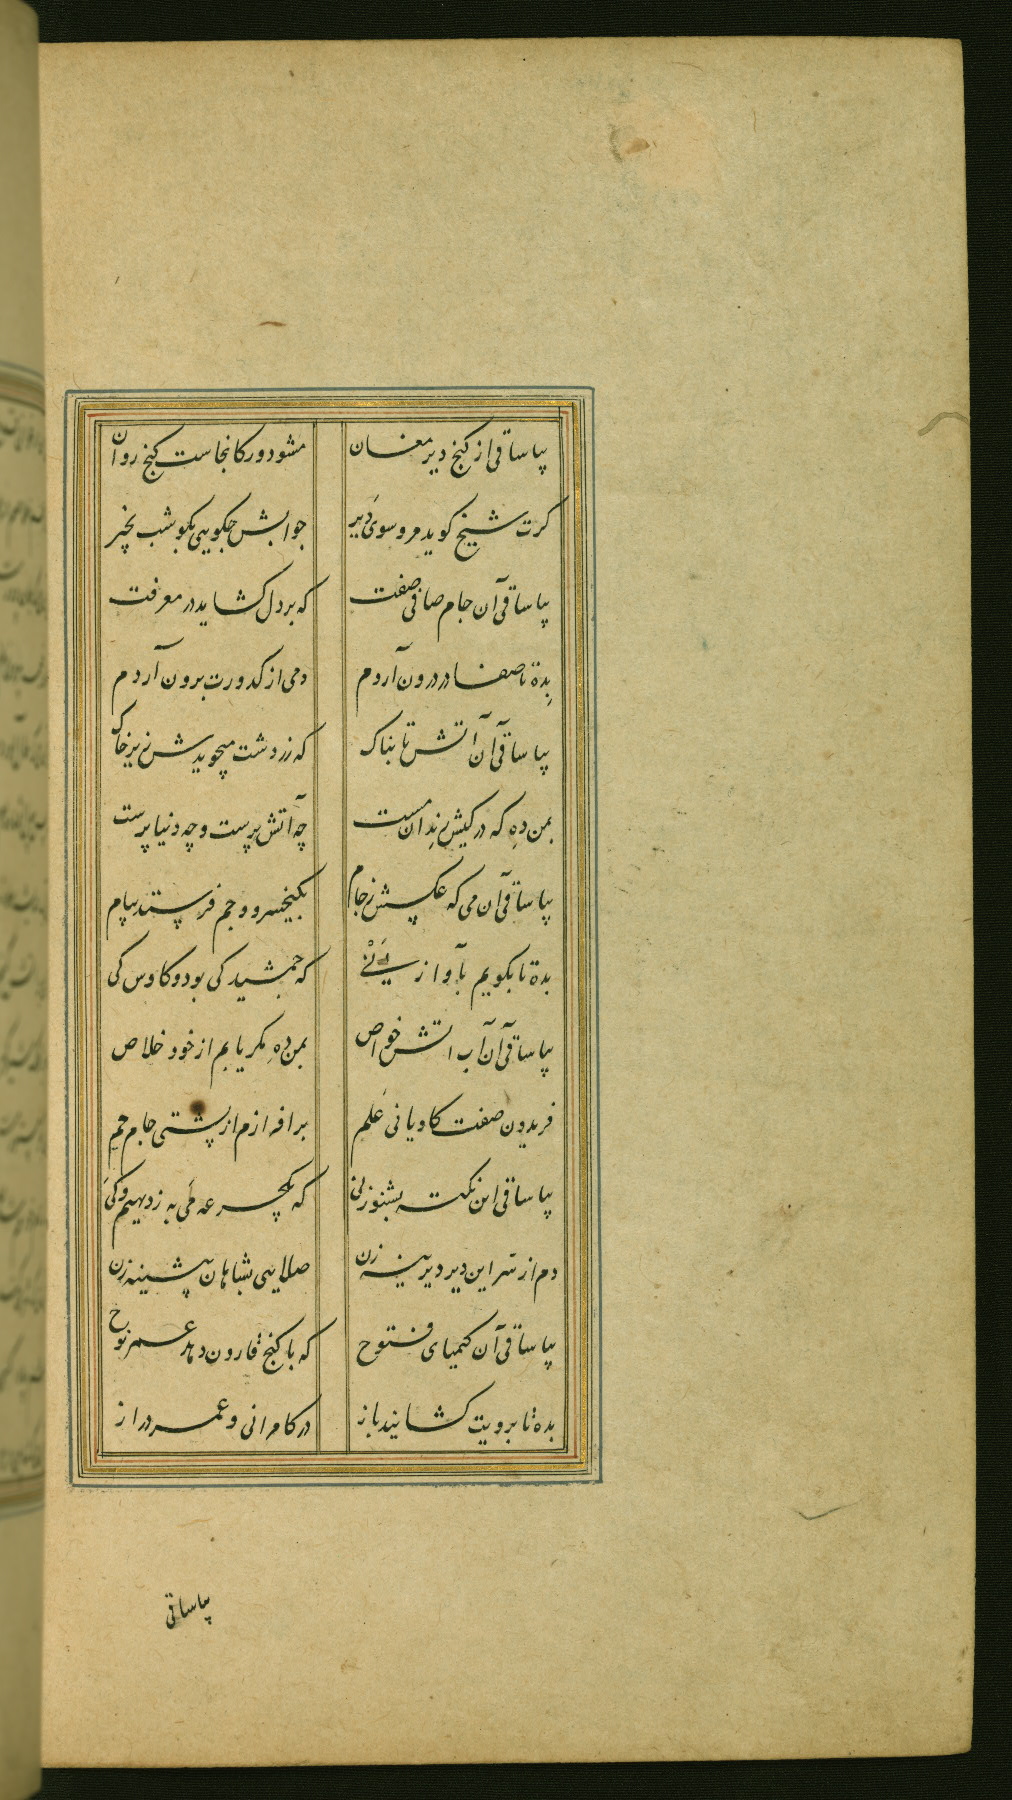 بیا ساقی از کنج دیر مغان مشو دور کانجاست کنج روان
کرت شیخ کوید مرو سوی دَیر جوابش چکویی بکو شب بخیر
بیا ساقی آن جام صافی صفت که بر دل کشاید در معرفت
بده تا صفا در درون آردم دمی از کدورت برون آردم
بیا ساقی آن آتش تابناک که زردشت میجویدش زیر خاک
بمن ده که در کیش رندان مست چه آتش پرست و چه دنیا پرست
بیا ساقی آن می که عکسش ز جام بکیخسرو و جم فرستد پیام
بده تا بکویم بآواز نی که جمشید کی بود و کاوس کی
بیا ساقی آن آب اتش خواص بمن ده مکر یابم از خود خلاص
فریدون صفت کاویانی عَلم برافرازم از پشتی جام جم
بیا ساقی این نکته بشنو ز نی که یکجرعه می به ز دیهیم و کَی
دم از سر این دیر دیرینه زن صلایی بشاهان پیشینه زن
بیا ساقی آن کیمیای فتوح که با کنج قارون دهد عمر نوح
بده تا برویت کشایند باز در کامرانی و عمر دراز
بیا ساقی